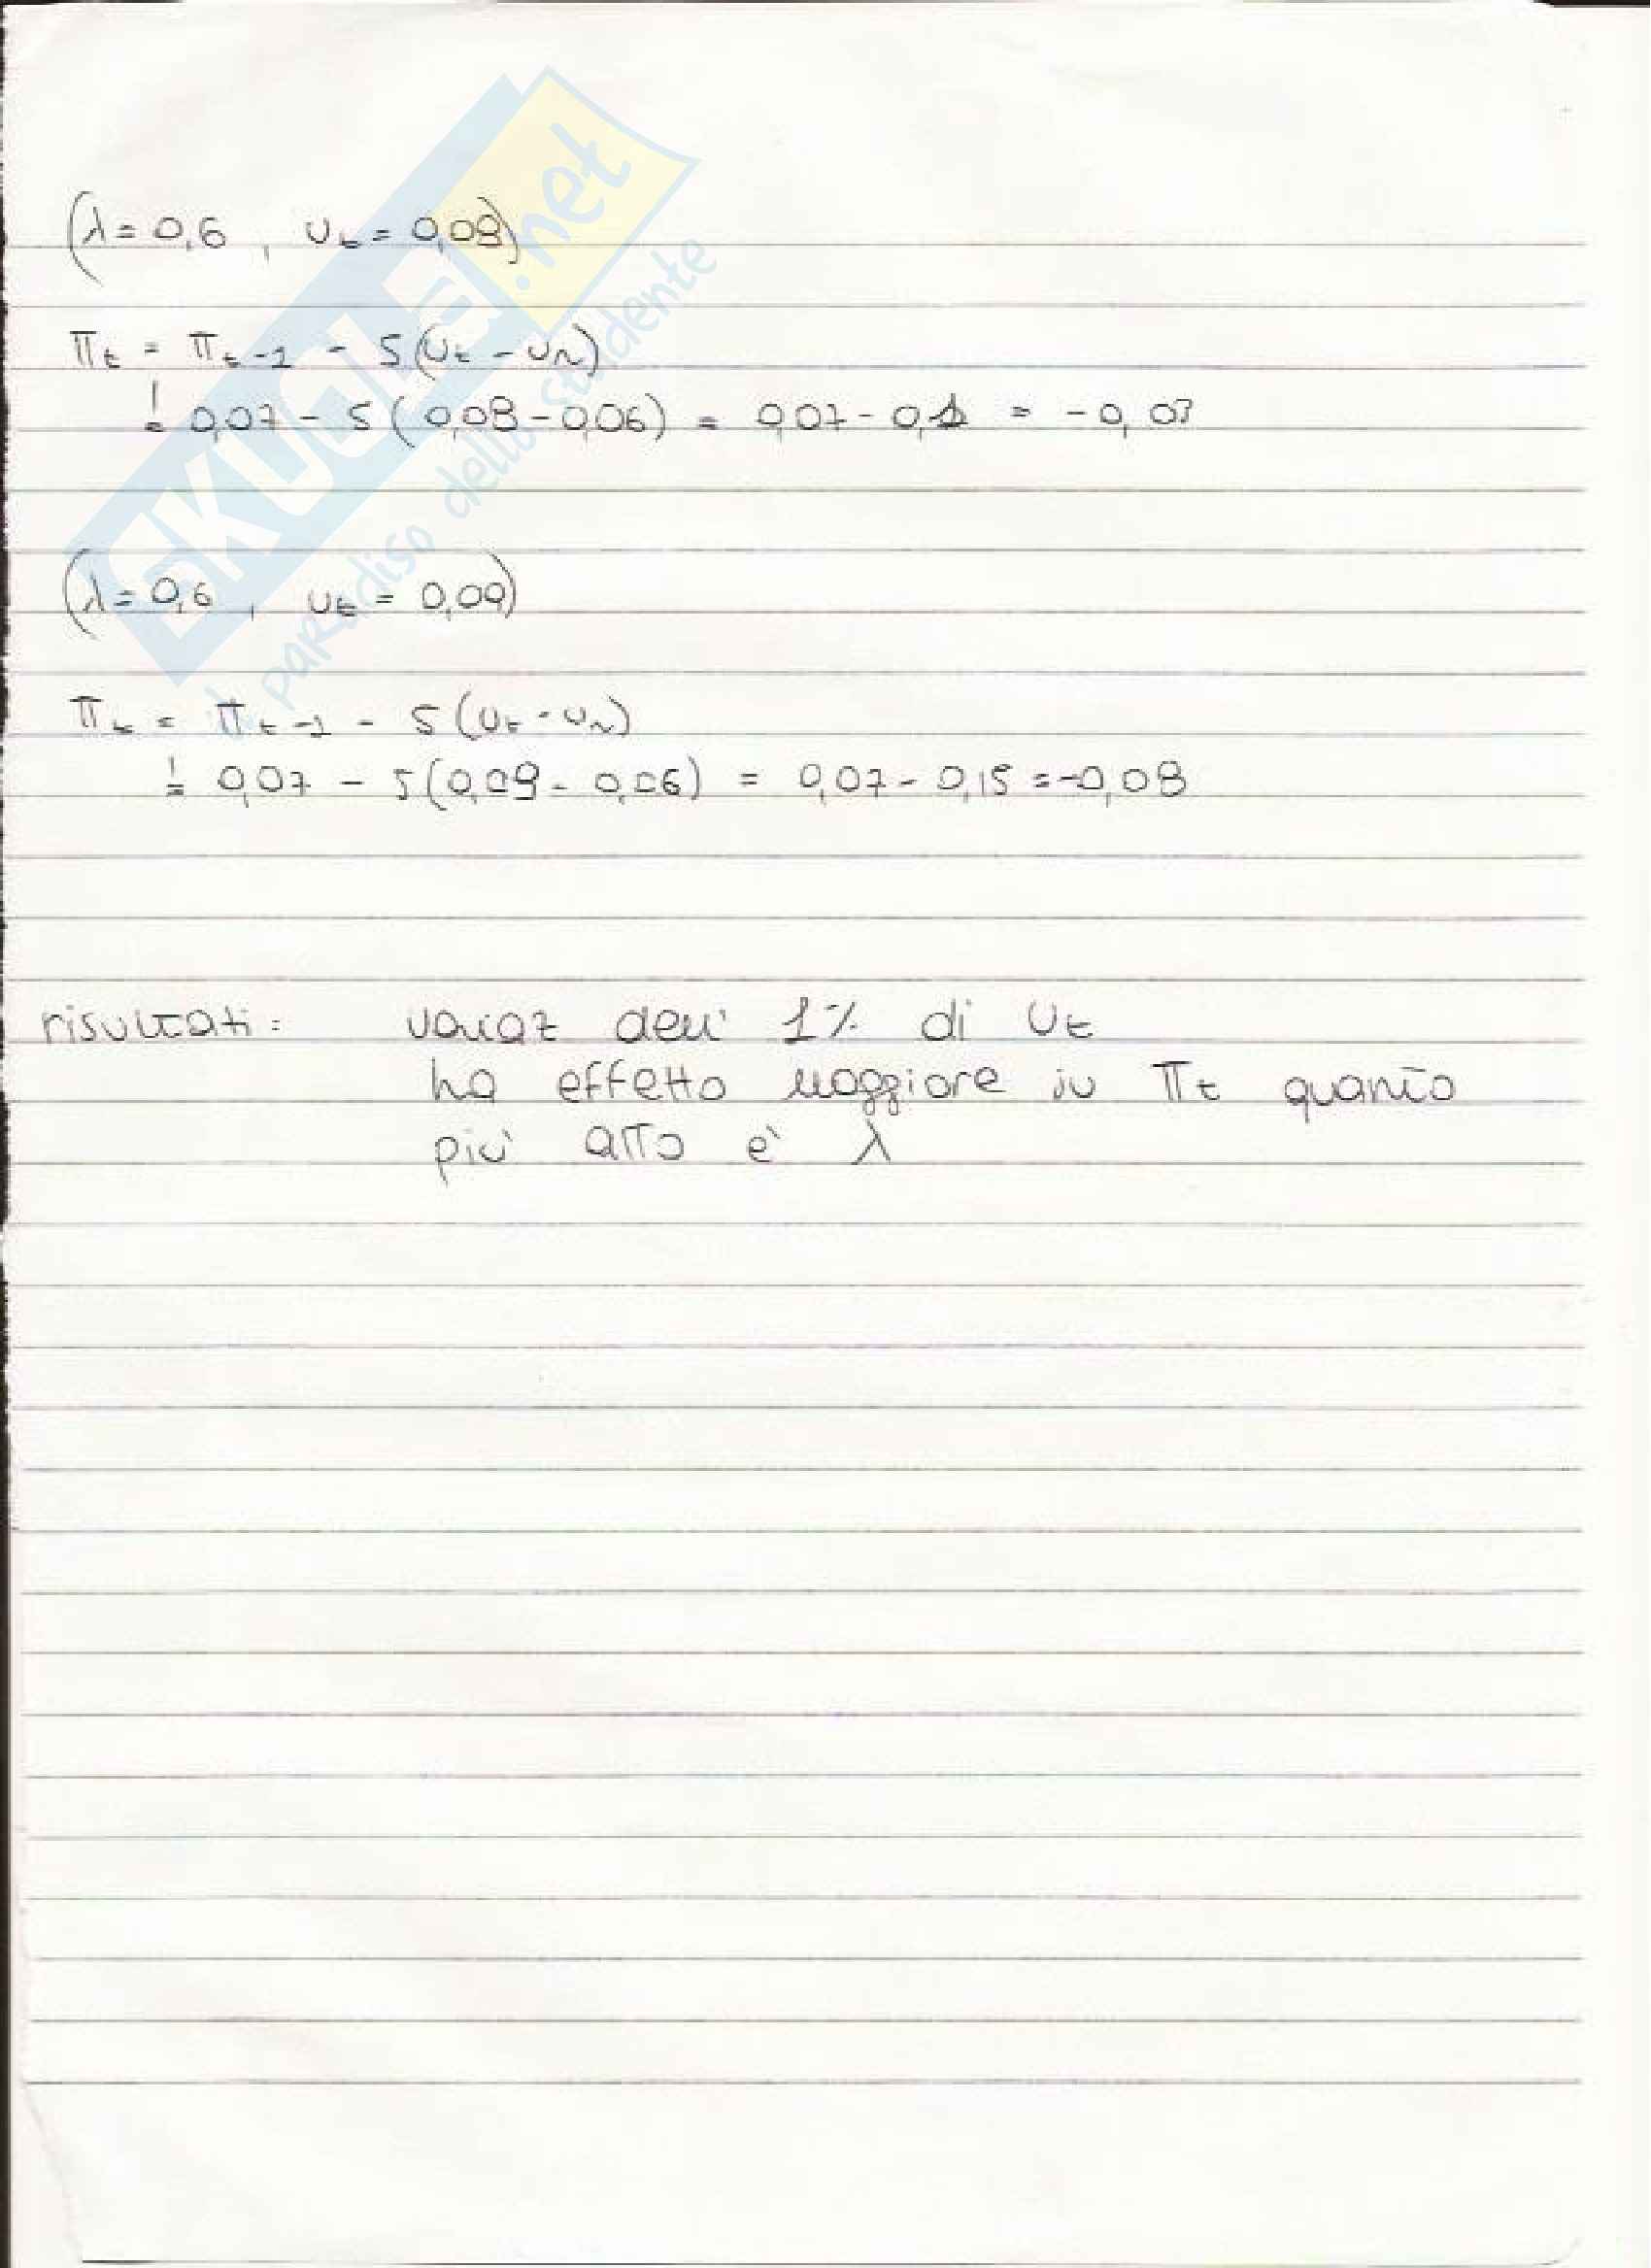 SKUOLa.net
il paradiso dello studente
(λ = 0,6 , Ut = 0,08)
Πt = Πt-1 - 5(Ut - Un)
= 0,07 - 5(0,08 - 0,06) = 0,07 - 0,1 = -0,03
(λ = 0,6 , Ut = 0,09)
Πt = Πt-1 - 5(Ut - Un)
= 0,07 - 5(0,09 - 0,06) = 0,07 - 0,15 = -0,08
risultati: variaz dell' 1% di Ut
ha effetto maggiore su Πt quanto
più alto è λ